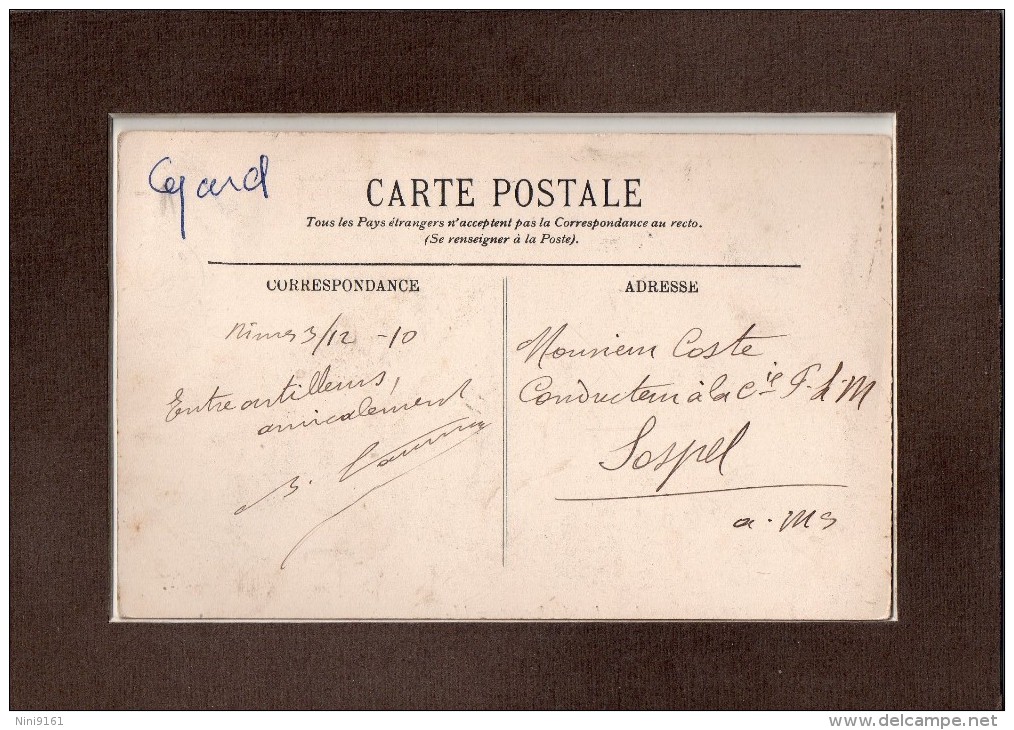 Gard
CARTE POSTALE
Tous les Pays étrangers n'acceptent pas la Correspondance au recto.
(Se renseigner à la Poste).
CORRESPONDANCE
Nimes 3/12 -10
Entre artilleurs,
amicalement
ADRESSE
Monsieur Coste
Conducteur à la Cie F. d M
Sospel
a. Ms
Nini9161
www.delcampe.net